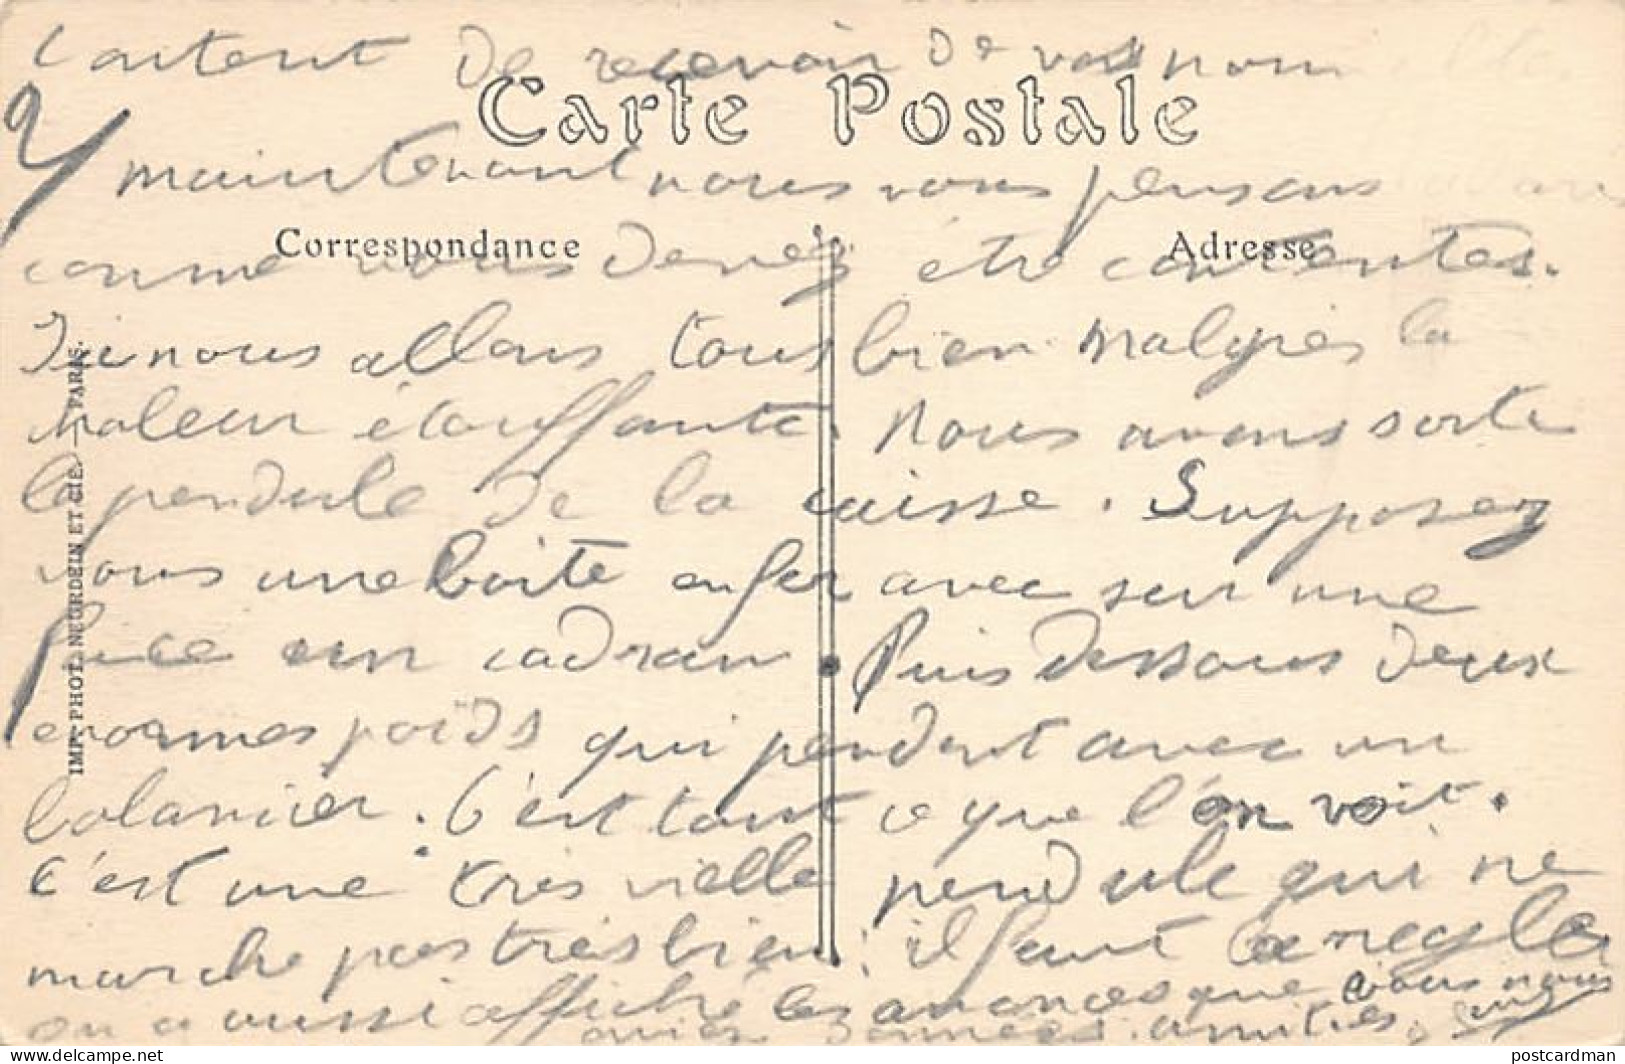 content de recevoir de vos nom
Carte Postale
maintenant nous vous pensons
Correspondance
Adresse
comme vous devez être contentes.
Ici nous allons tous bien malgrés la
chaleur étouffante. Nous avons sortie
la pendule de la caisse. Supposez
vous une boîte en fer avec sur une
face un cadran. Puis dessous deux
enormes poids qui pendent avec un
balancier. C'est tout ce que l'on voit.
C'est une très vielle pendule qui ne
marche pas très bien; il faut la regler
on a aussi affiché les annonces que vous nous
aviez données. amitiés,
IMP. PHOT. NEURDEIN ET CIE. — PARIS.
postcardman